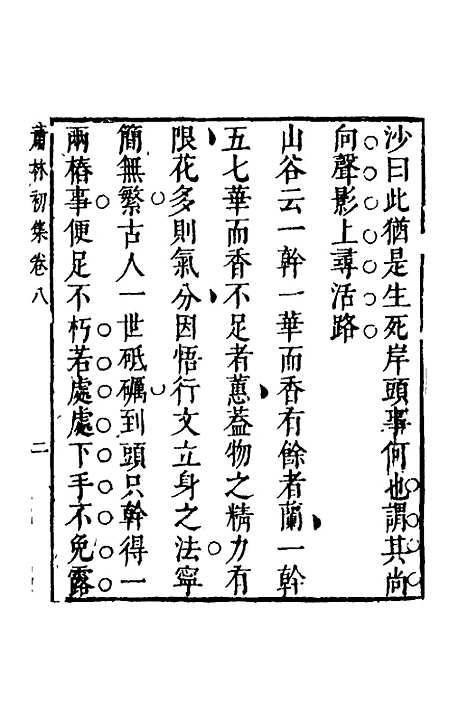 沙曰此猶是生死岸頭事何也謂其尚
向聲影上尋活路
山谷云一幹一華而香有餘者蘭一幹
五七華而香不足者蕙葢物之精力有
限花多則氣分因悟行文立身之法寧
簡無繁古人一世砥礪到頭只幹得一
兩樁事便足不朽若處處下手不免露
肅林初集卷八
二